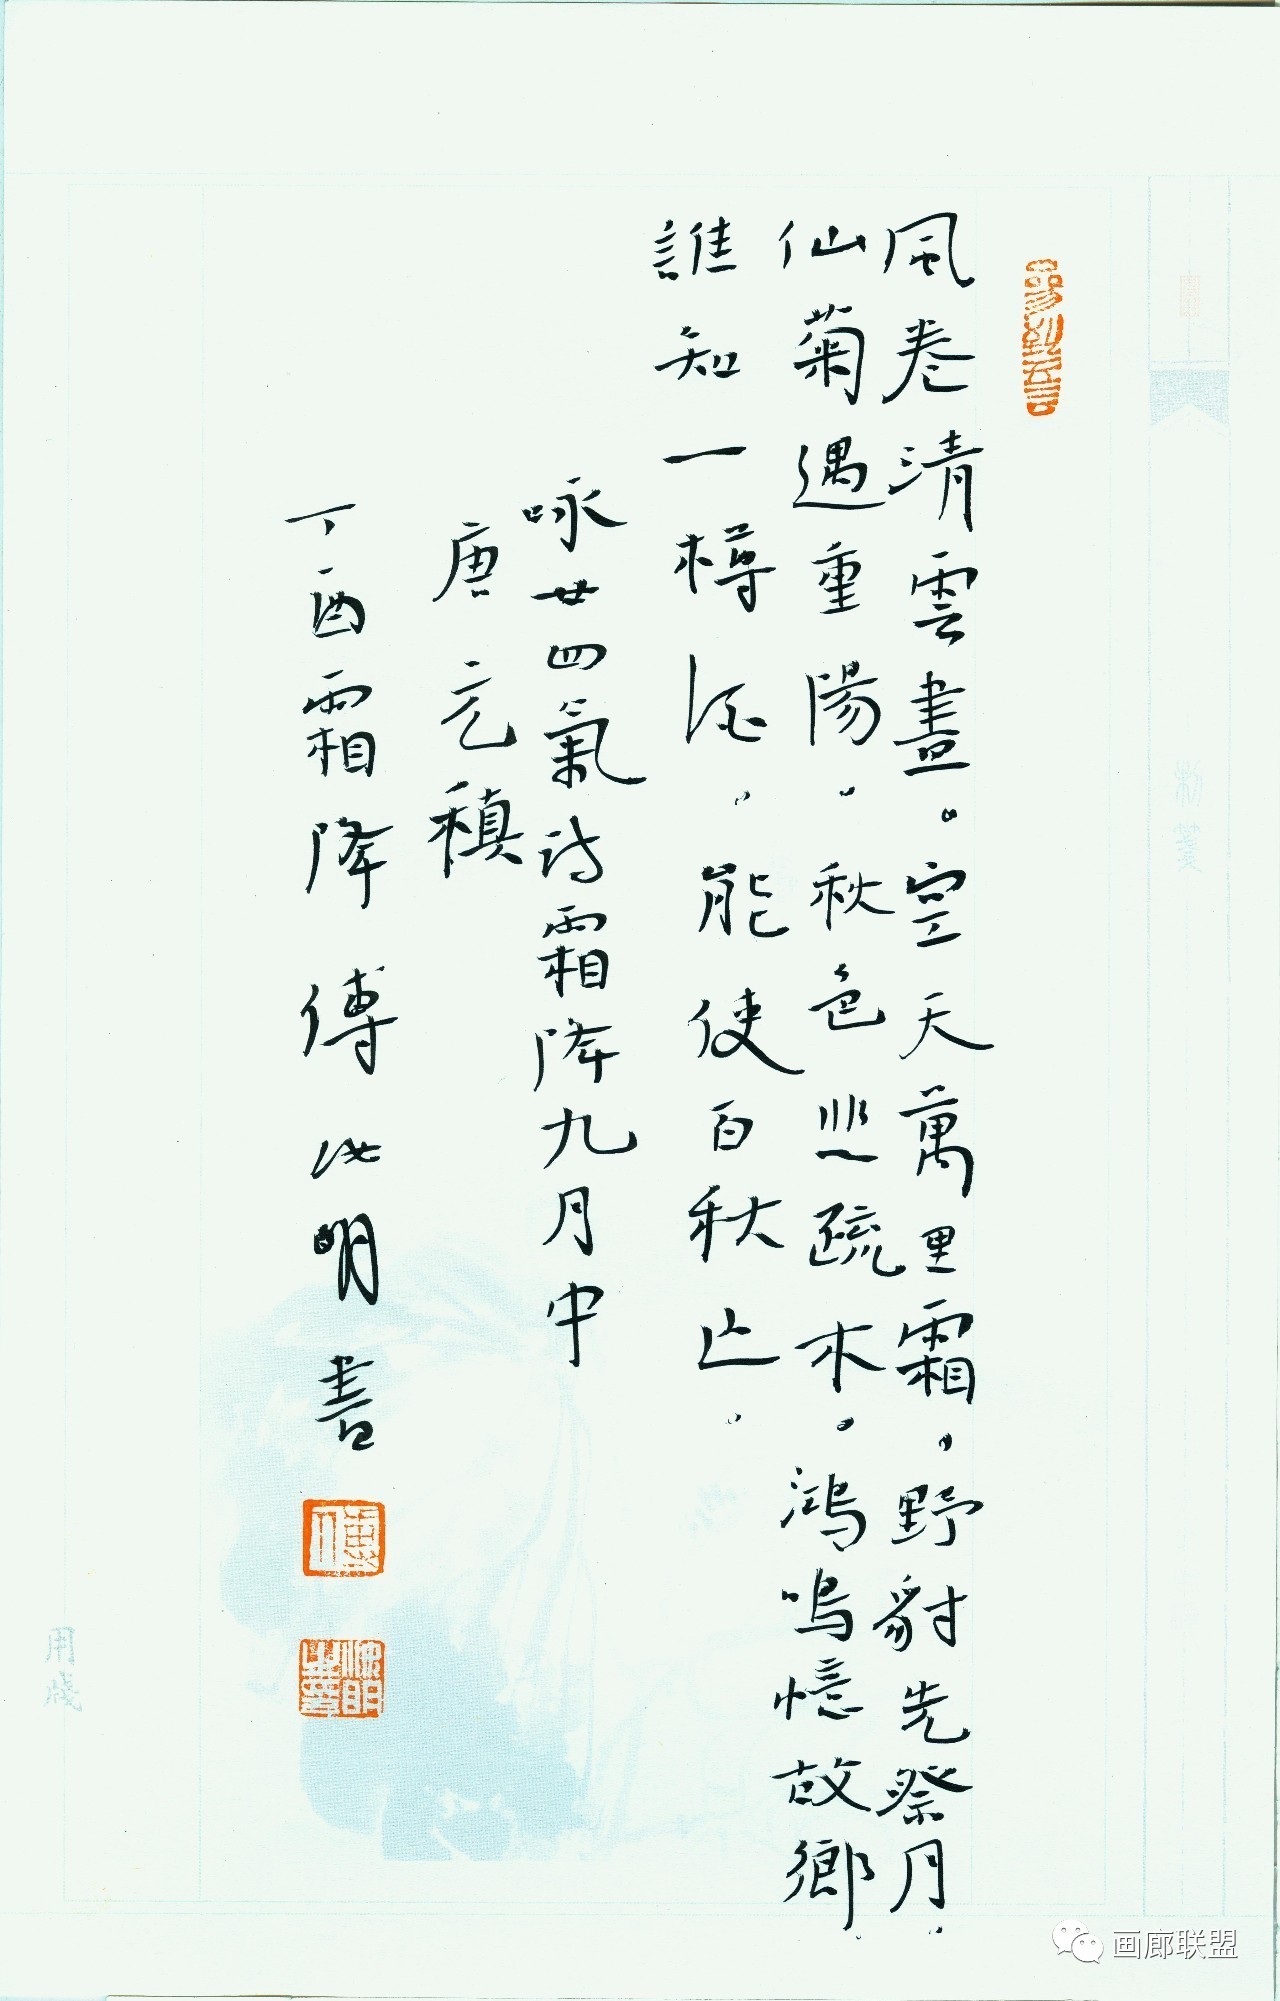 風卷清雲晝。空天萬里霜。野豺先祭月。
仙菊遇重陽。秋色悲疏木。鴻鳴憶故鄉。
誰知一樽酒。能使百秋亡。
咏廿四氣詩霜降九月中
唐元稹
丁酉霜降傅此明書
用牋
画廊联盟